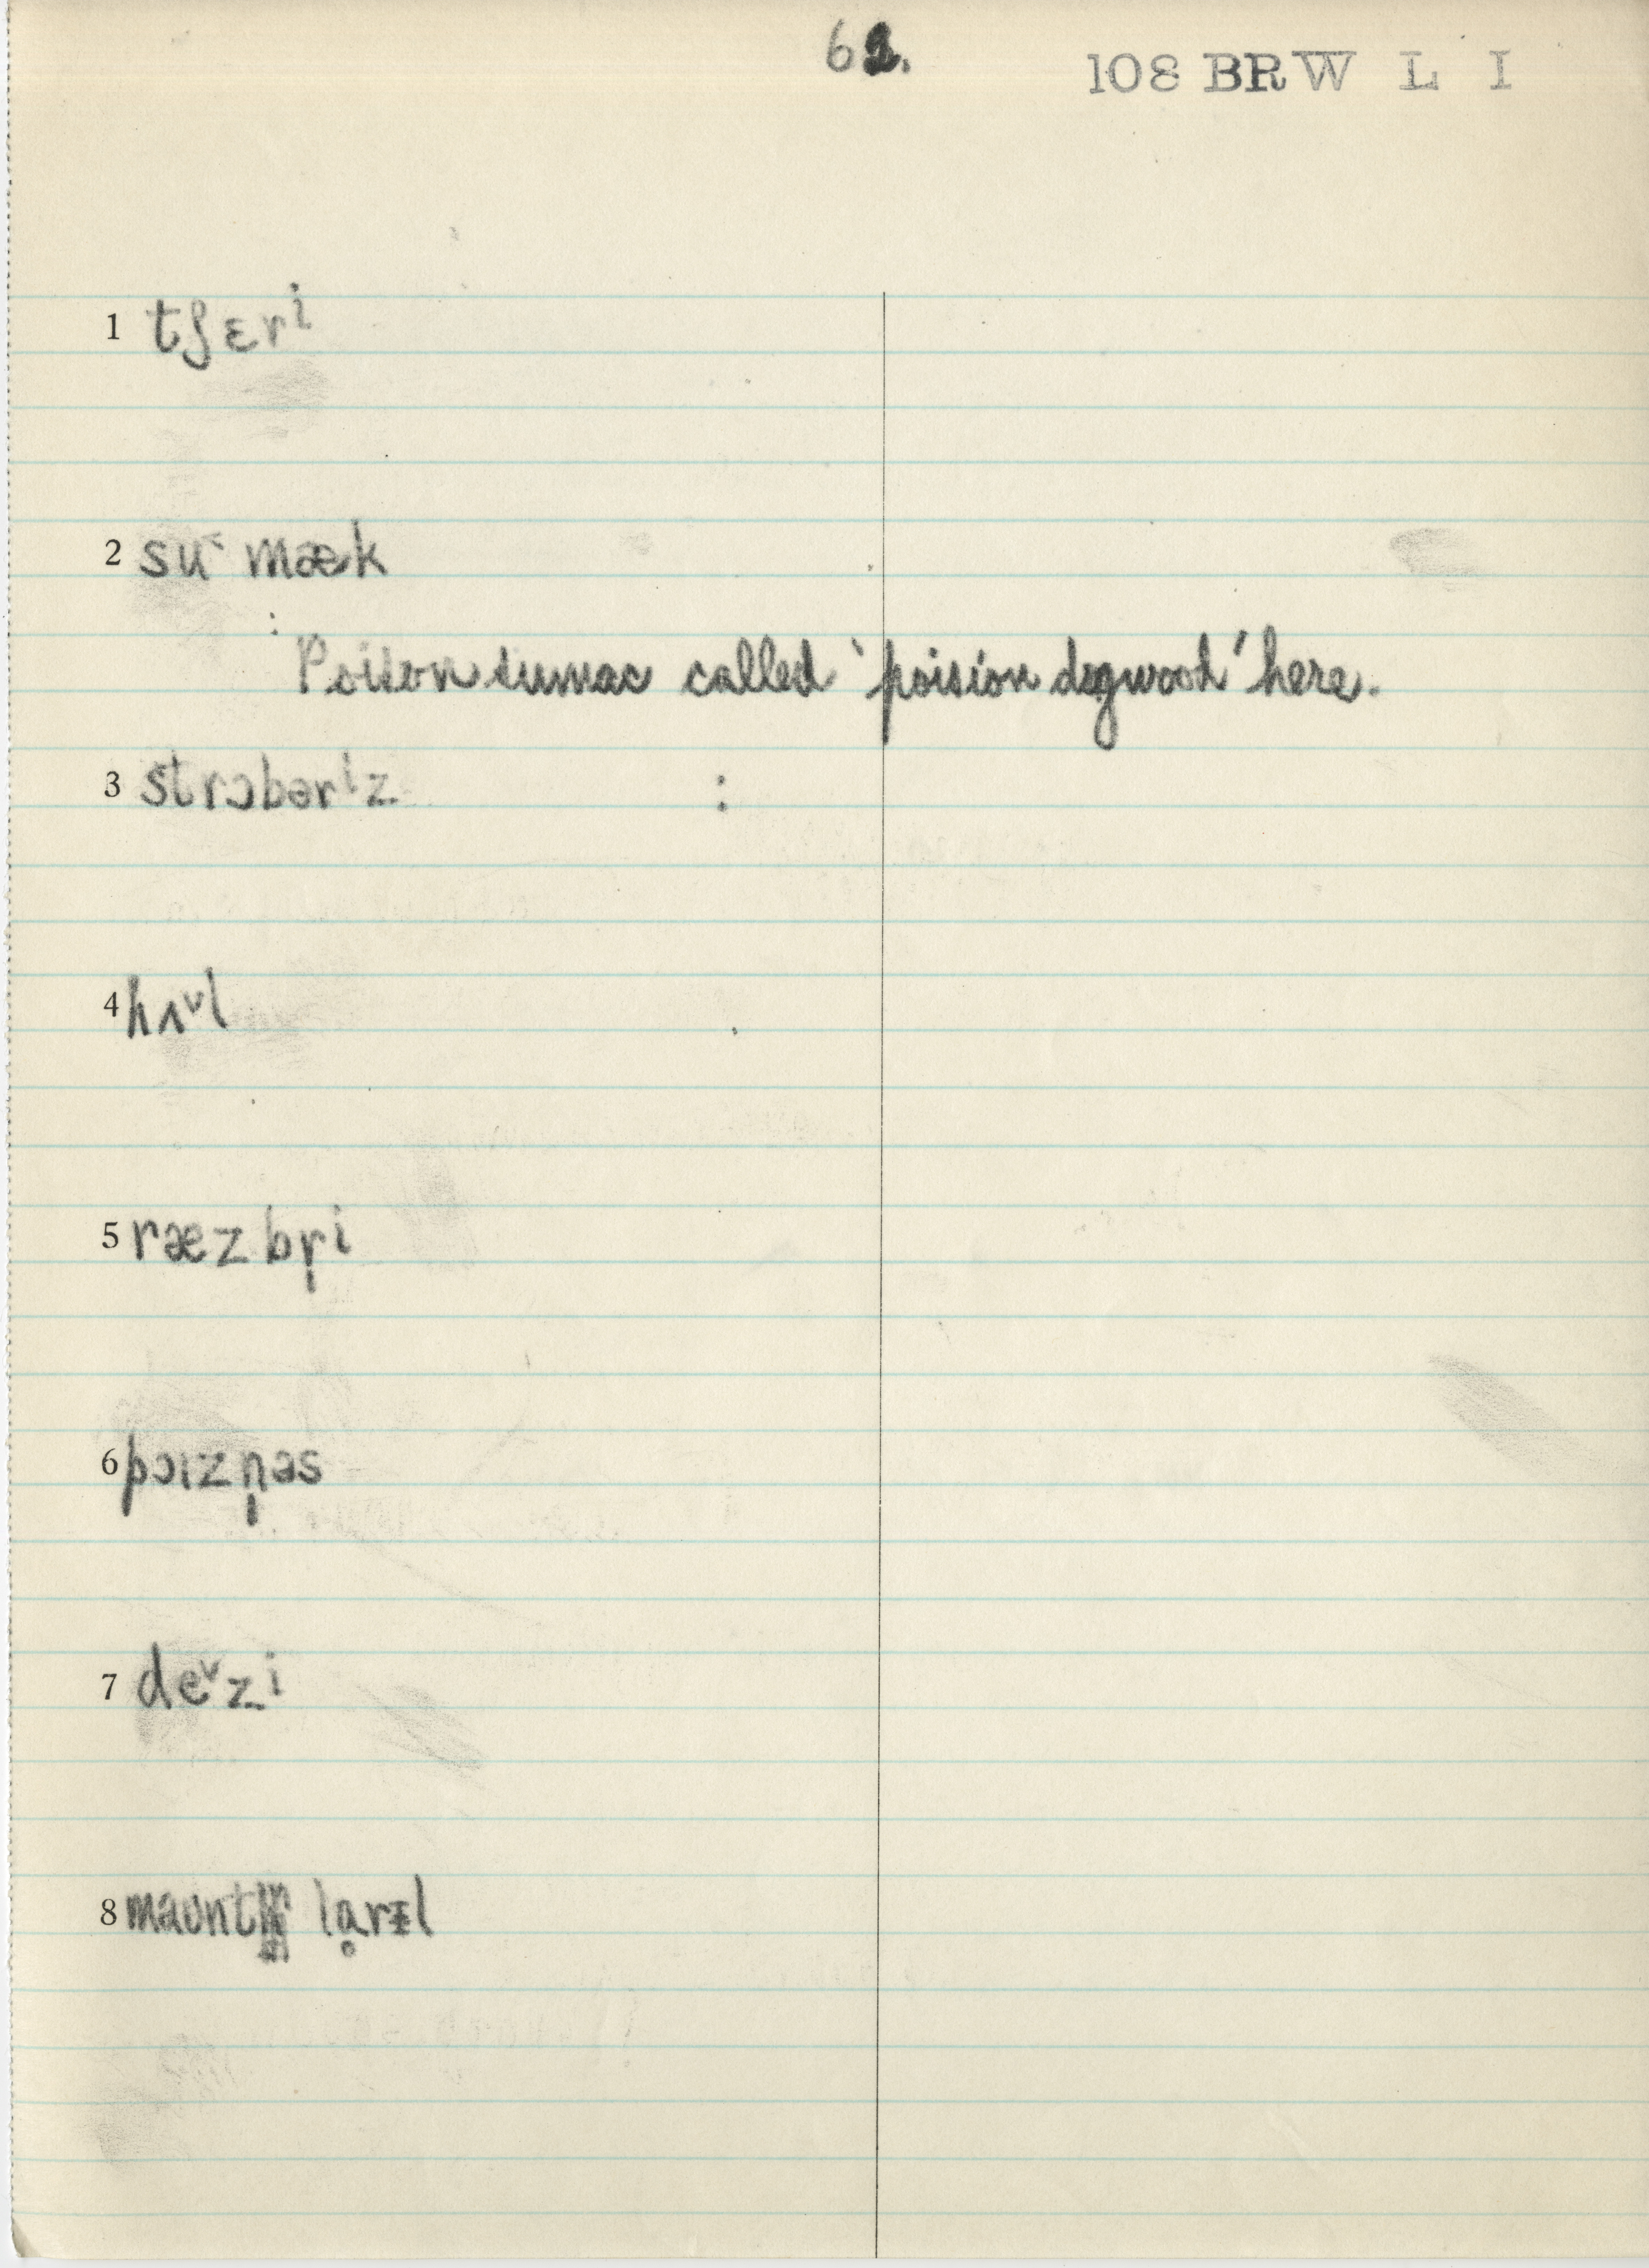 62.
108 BRW L I
1 tʃɛrⁱ
2 su˂ mæk
: Poison sumac called 'poision dogwood' here.
3 strɔbərⁱz :
4 hʌ˅l
5 ræzbr̩i
6 pɔɪzn̩əs
7 de˅zi
8 maʊnt lạrɪl